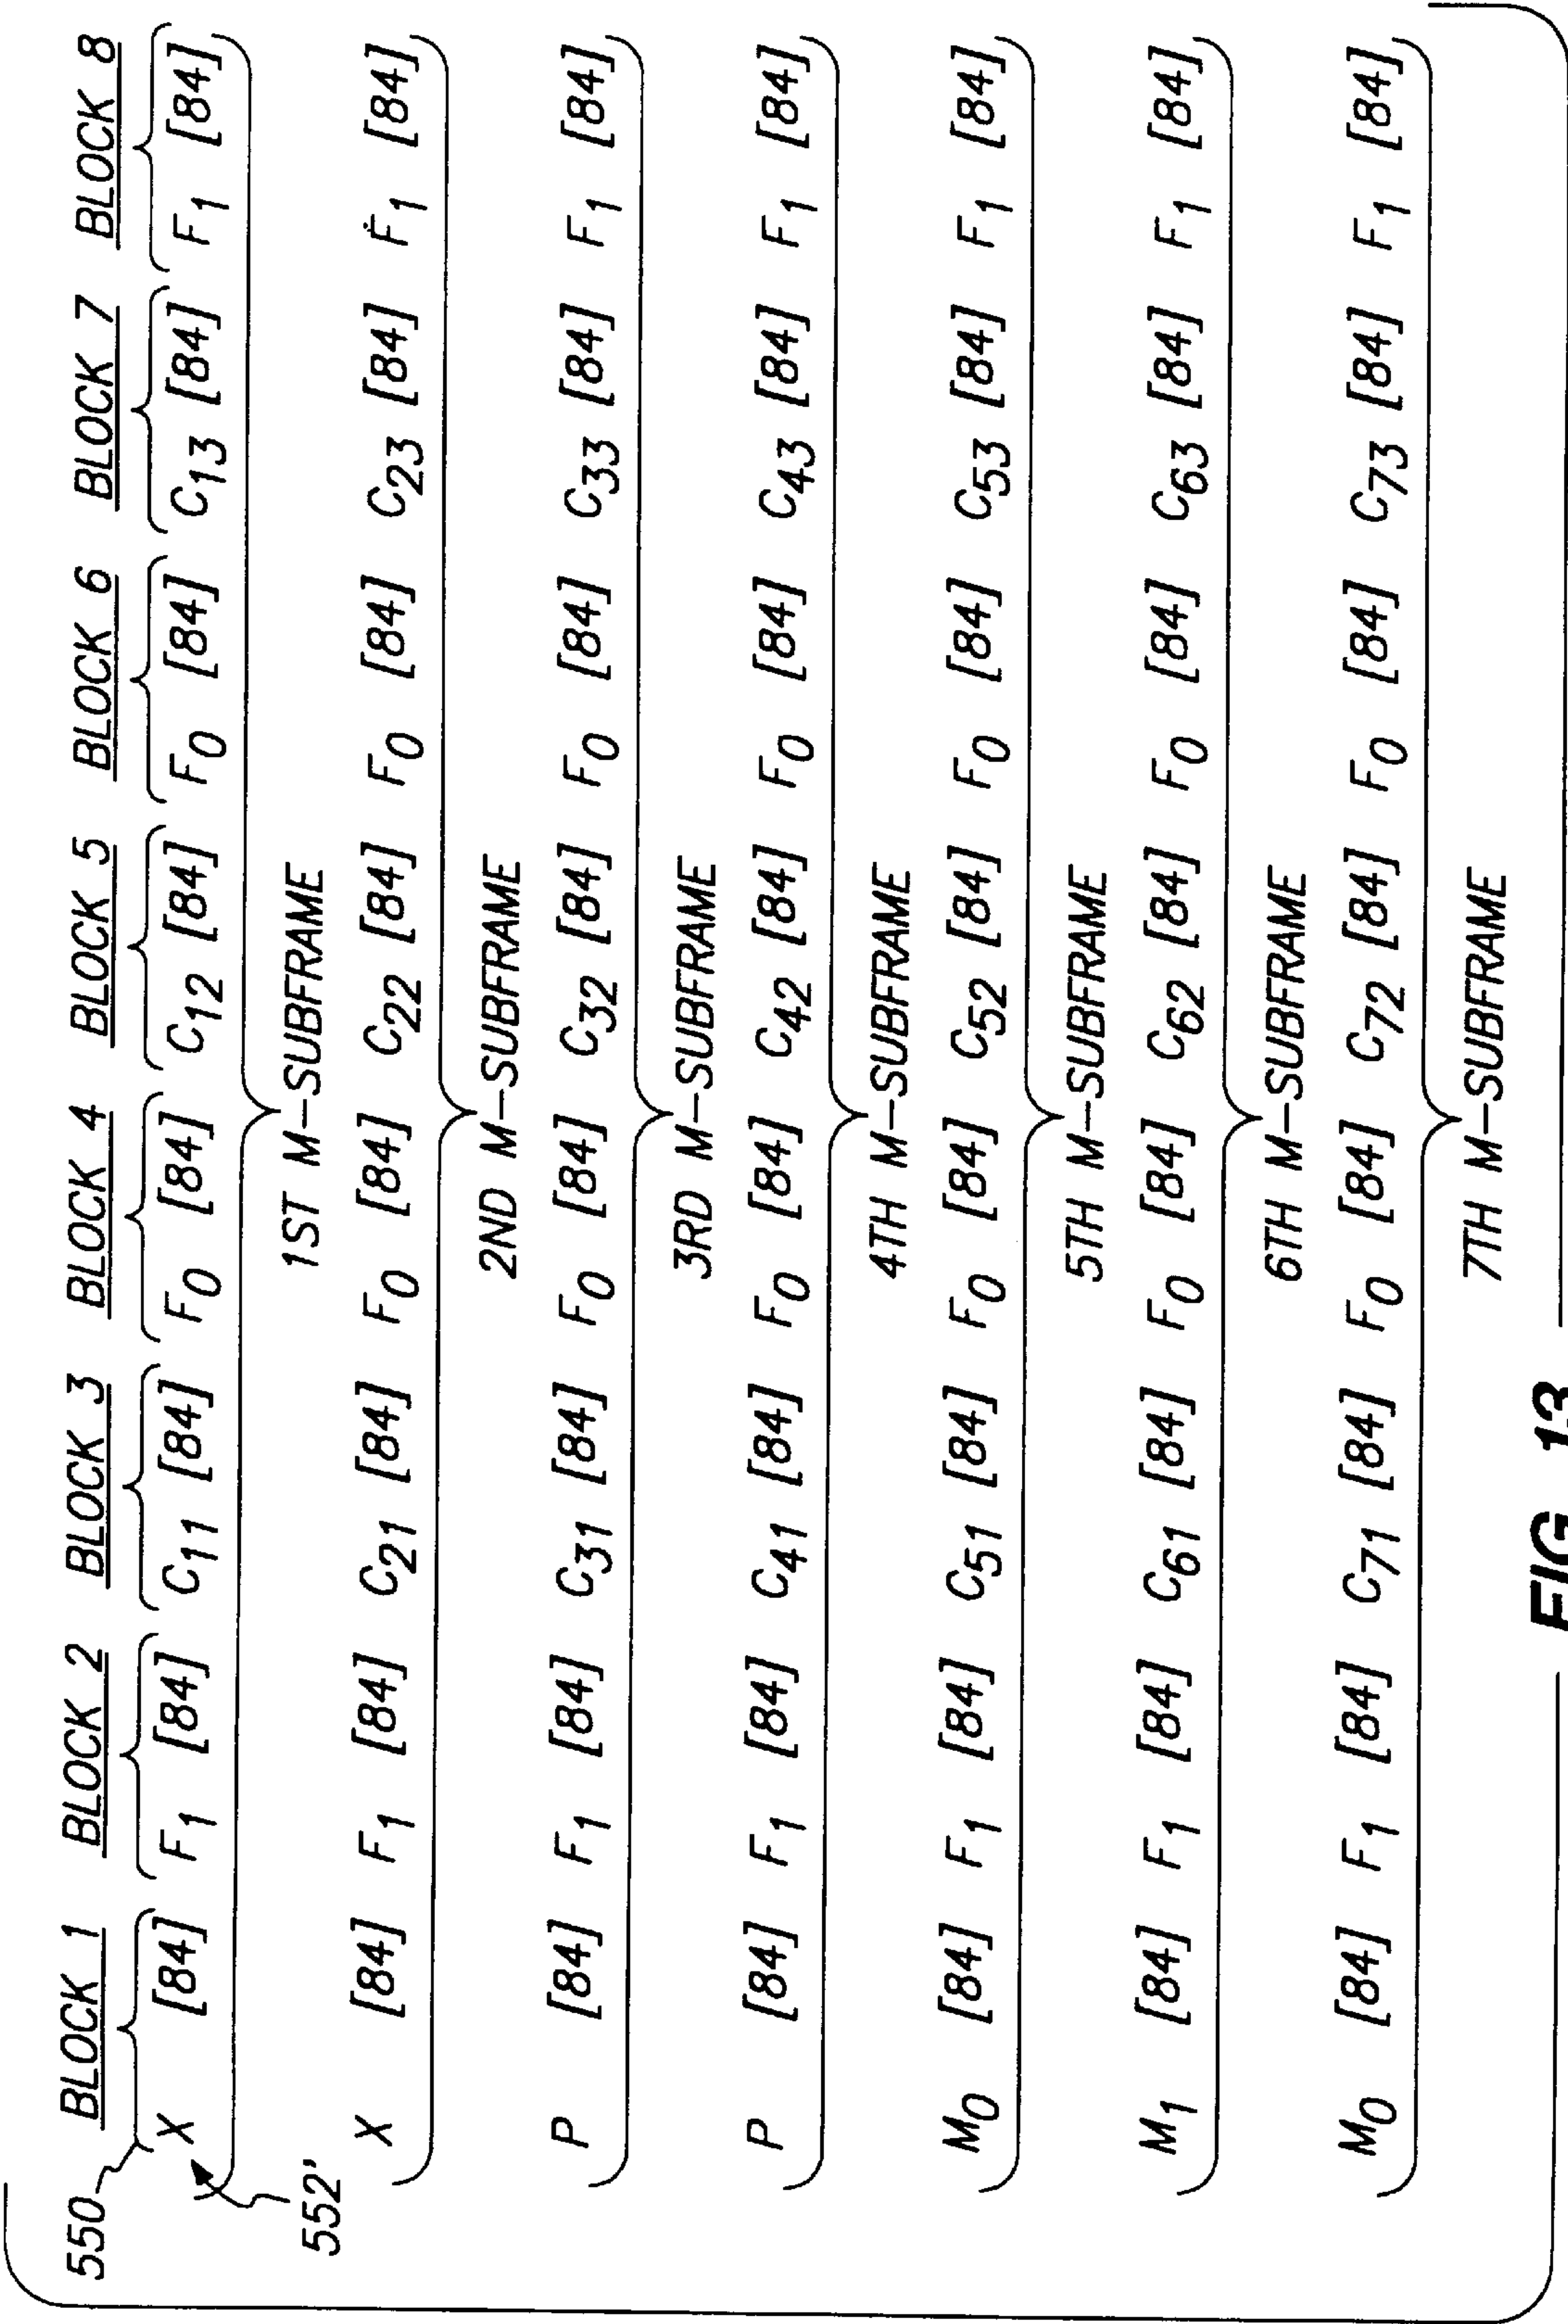 BLOCK 1 BLOCK 2 BLOCK 3 BLOCK 4 BLOCK 5 BLOCK 6 BLOCK 7 BLOCK 8
550
X [84] F1 [84] C11 [84] F0 [84] C12 [84] F0 [84] C13 [84] F1 [84]
552'
1ST M-SUBFRAME
X [84] F1 [84] C21 [84] F0 [84] C22 [84] F0 [84] C23 [84] F1 [84]
2ND M-SUBFRAME
P [84] F1 [84] C31 [84] F0 [84] C32 [84] F0 [84] C33 [84] F1 [84]
3RD M-SUBFRAME
P [84] F1 [84] C41 [84] F0 [84] C42 [84] F0 [84] C43 [84] F1 [84]
4TH M-SUBFRAME
M0 [84] F1 [84] C51 [84] F0 [84] C52 [84] F0 [84] C53 [84] F1 [84]
5TH M-SUBFRAME
M1 [84] F1 [84] C61 [84] F0 [84] C62 [84] F0 [84] C63 [84] F1 [84]
6TH M-SUBFRAME
M0 [84] F1 [84] C71 [84] F0 [84] C72 [84] F0 [84] C73 [84] F1 [84]
7TH M-SUBFRAME
FIG 13